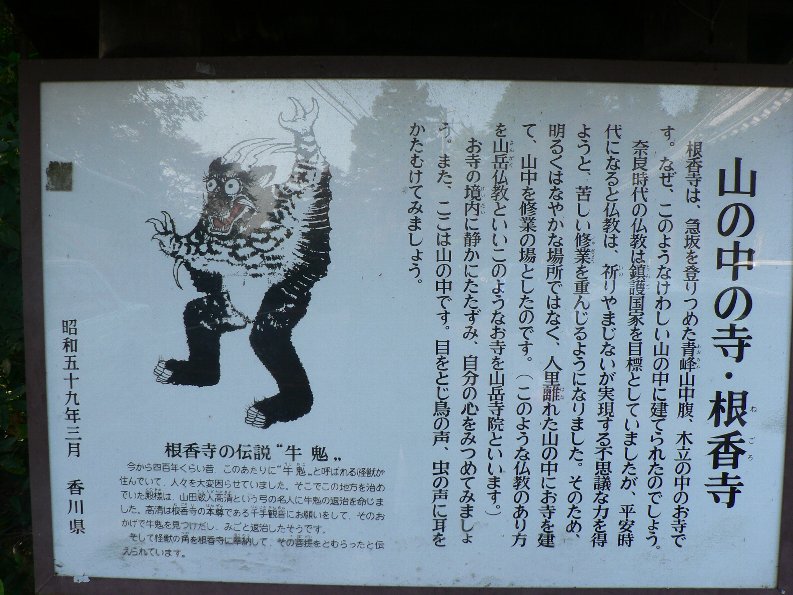 山の中の寺・根香寺
ねごろ
根香寺は、急坂を登りつめた青峰山中腹、木立の中のお寺で
す。なぜ、このようなけわしい山の中に建てられたのでしょう。
奈良時代の仏教は鎮護国家を目標としていましたが、平安時
代になると仏教は、祈りやまじないが実現する不思議な力を得
ようと、苦しい修業を重んじるようになりました。そのため、
明るくはなやかな場所ではなく、人里離れた山の中にお寺を建
て、山中を修業の場としたのです。（このような仏教のあり方
を山岳仏教といいこのようなお寺を山岳寺院といいます。）
お寺の境内に静かにたたずみ、自分の心をみつめてみましょ
う。また、ここは山の中です。目をとじ鳥の声、虫の声に耳を
かたむけてみましょう。
根香寺の伝説“牛鬼„
今から四百年くらい昔、このあたりに“牛鬼„と呼ばれる怪獣が
住んでいて、人々を大変困らせていました。そこでこの地方を治め
ていた殿様は、山田蔵人高清という弓の名人に牛鬼の退治を命じま
した。高清は根香寺の本尊である千手観音にお願いをして、そのお
かげで牛鬼を見つけだし、みごと退治したそうです。
そして怪獣の角を根香寺に奉納して、その菩提をとむらったと伝
えられています。
昭和五十九年三月　香川県